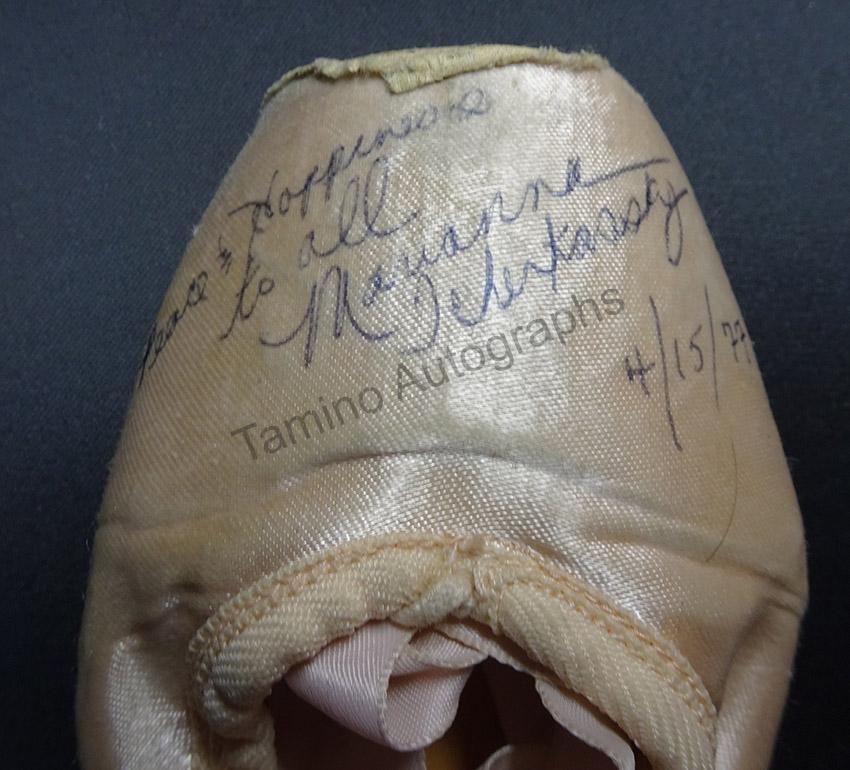 Peace & Happiness
to all
Marianna
Tcherkassky
4/15/77
Tamino Autographs